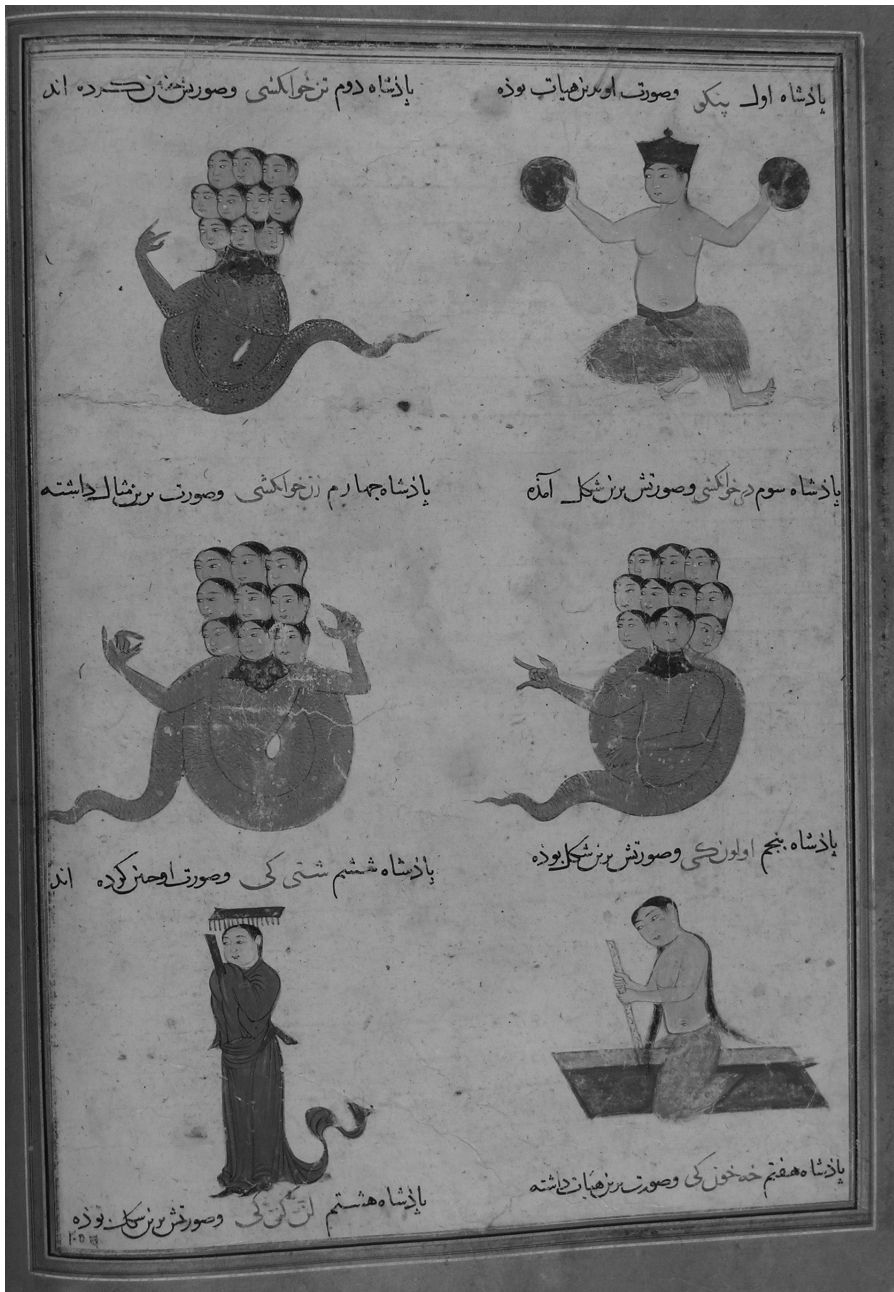 پاذشاه اول پنکو وصورت او برین هیات بوذه
پاذشاه دوم تن خوانکشی وصورتش چنین کرده اند
پاذشاه سوم دی خوانکشی وصورتش برین شکل آمذه
پاذشاه جهارم زن خوانکشی وصورت برین مثال داشته
پاذشاه بنجم اولون کی وصورتش برین شکل بوذه
پاذشاه ششم شتی کی وصورت او جنین کرده اند
پاذشاه هفتم خه خون کی وصورت برین هیات داشته
پاذشاه هشتم وصورتش برین سان بوذه